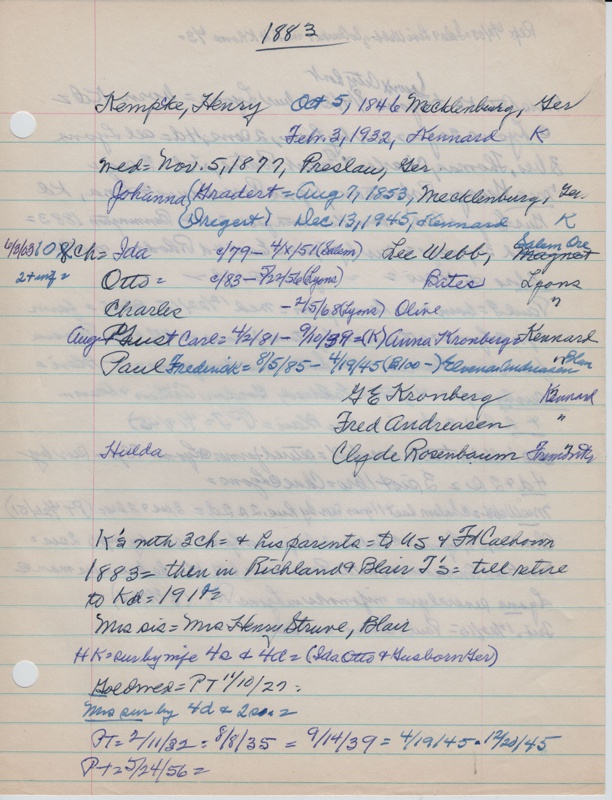 1883
Kempske, Henry Oct 5, 1846 Mecklenburg, Ger
Feb. 3, 1932, Kennard K
med = Nov. 5, 1877, Preslau, Ger
Johanna (Gradert = Aug 7, 1853, Mecklenburg, Ger.
(Dregert) Dec 13, 1945, Kennard K
8 ch = Ida c/79 - 4/x/51 (Salem) Lee Webb, Salem Ore
Otto = c/83 - 5/22/56 (Lyons) Bates Lyons
Charles - 2/5/68 (Lyons) Olive "
Aug = Gust Carl = 4/2/81 - 9/10/39 = (K) Anna Kronberg = Kennard
Paul Frederick = 8/5/85 - 4/19/45 Andreasen
G E Kronberg Kennard
Fred Andreasen "
Hulda Clyde Rosenbaum
K's with 3 ch = & his parents = to US & Ft Calhoun
1883 = then in Richland & Blair T's = till retire
to Kd = 1918
Mrs sis = Mrs Henry Struve, Blair
H K = sur by wife 4 s & 4 d = (Ida Otto & Gus born Ger)
Gold wed = PT 11/10/27 =
Mrs sur by 4 d & 2 son =
PT = 2/11/32 = 8/8/35 = 9/14/39 = 4/19/45 = 12/20/45
PT = 5/24/56 =